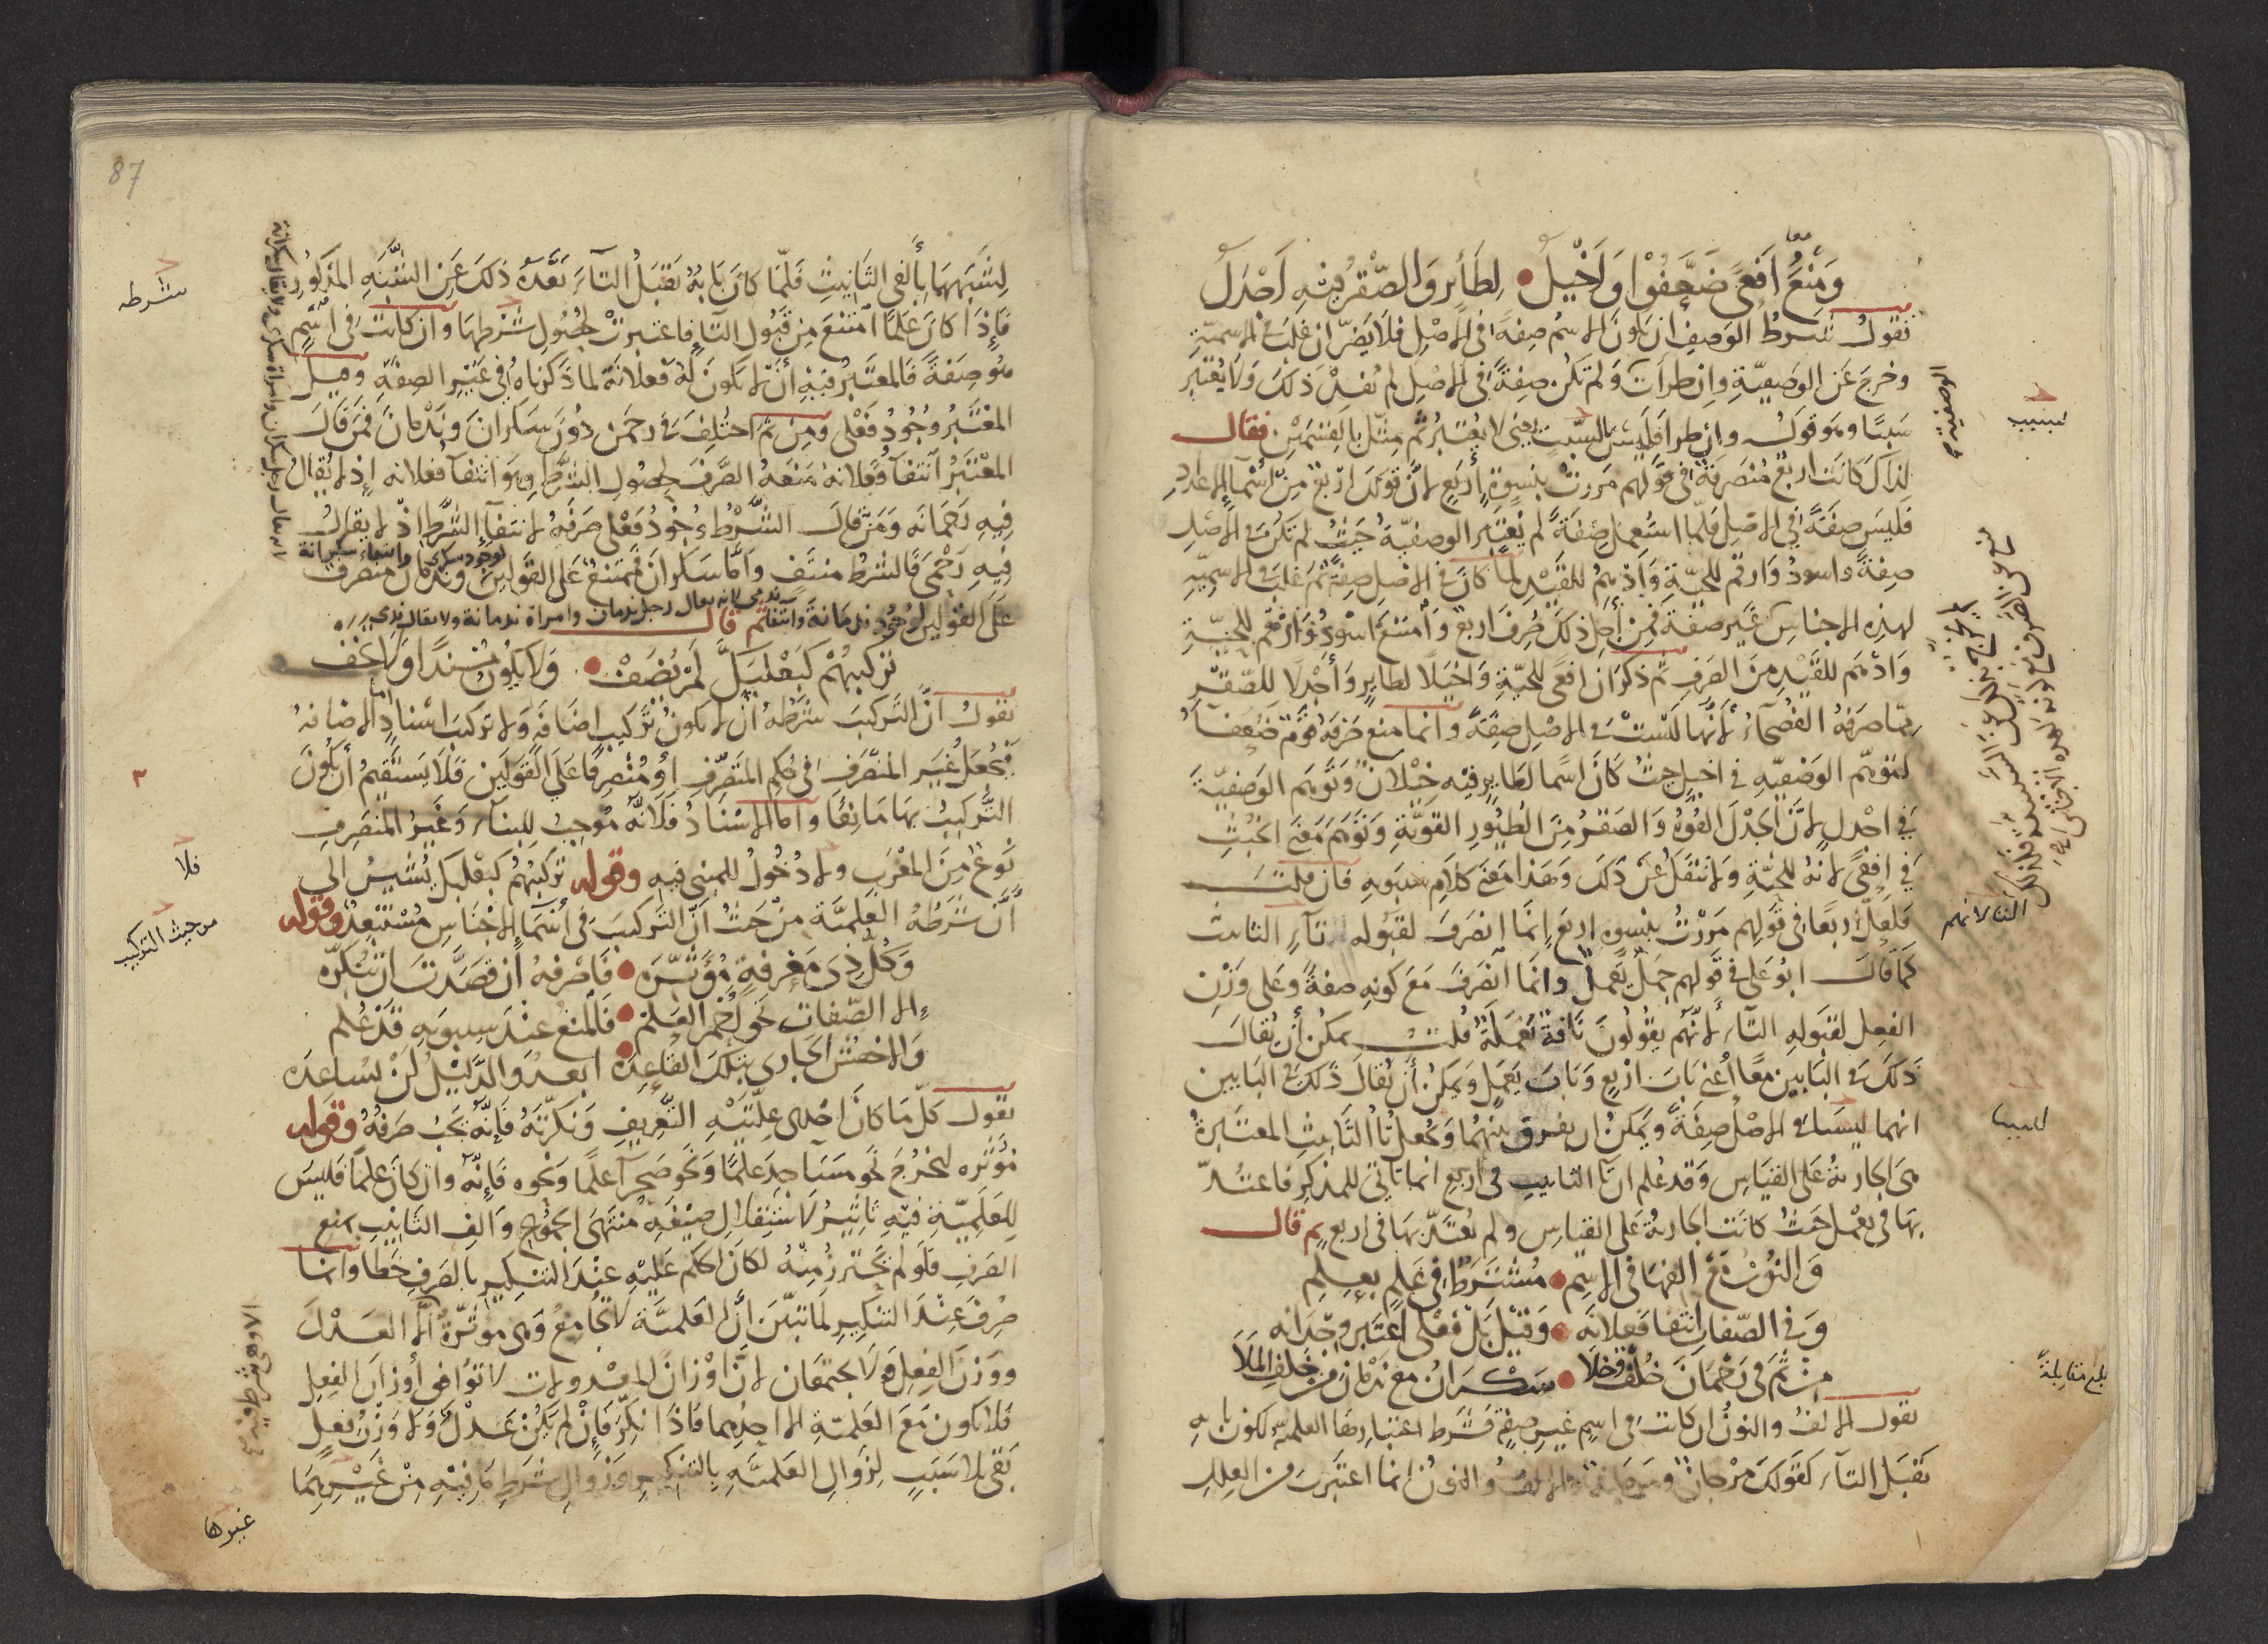 ومنع افعى ضعفوا واخيل • لطائر والصقر فيه اجدل
نقول شرط الوصف ان يكون الاسم صفة في الاصل فلا يضر ان غلب في الاسمية
وخرج عن الوصفية وان طرأت ولم تكن صفة في الاصل لم يفد ذلك ولا يعتبر
سببا وهو قوله وان طرأ فليس السبب يعني لا يعتبر ثم مثل بالقسمين فقال
لذاك كانت اربع منصرفة في قولهم مررت بنسوة أربع لان قولك اربع من اسما الاعداد
فليس صفة في الاصل فلما استعمل صفة لم يعتبر الوصفية حيث لم تكن في الاصل
صفة واسود وارقم للحية وادهم للقيد لما كان في الاصل صفة ثم غلب في الاسمية
لهذه الاجناس غير صفة فمن أجل ذلك صرف اربع وامتنع اسود وارقم للحية
وادهم للقيد من الصرف ثم ذكر ان افعى للحية واخيلا لطاير وأجدلا للصقر
مما صرفه الفصحاء لانها ليست في الاصل صفة وانما منع صرفه قوم ضعفا
لتوهم الوصفيه في اخيل حيث كان اسما لطاير فيه خيلان وتوهم الوصفية
في اجدل لان الجدل القوة والصقر من الطيور القوية وتوهم معنى الخبث
في افعى لانه للحية ولا تنتقل عن ذلك وهذا معنى كلام سيبويه فان قلت
فلعل اربعا في قولهم مررت بنسوة اربع انما انصرف لقبوله تاء التانيث
كما قال ابو علي في قولهم جمل يعمل وانما انصرف مع كونه صفة وعلى وزن
الفعل لقبوله التاء لانهم يقولون ناقة يعملة قلت يمكن أن يقال
ذلك في البابين معا أعني باب اربع وباب يعمل ويمكن أن يقال ذلك في البابين
انهما ليسا في الاصل صفة ويمكن ان يفرق بينهما وتجعل تا التانيث المعتبرة
هي الجارية على القياس وقد علم ان تا التانيث في اربع انما تأتي للمذكر فاعتد
بها في يعمل حيث كانت الجارية على القياس ولم يعتد بها في اربع ثم قال
والنون مع الفها في الاسم • مشترط في علم بعلم
وفي الصفات انتفا فعلانه • وقيل بل فعلى اعتبر وجدانه
من ثم في رحمان خلف قد خلا • سكران مع ندمان من خلف الملا
نقول الالف والنون ان كانت في اسم غير صفة فشرط اعتبارها العلمية لكون بابه
تقبل التاء كقولك مرجان ومرجانة والالف والنون انما اعتبرت من العلل
الوصفية
لسبب
التا لانهم
ليسا
بلغ مقابلة
87
لشبهها بألفي التانيث فلما كان بابه تقبل التاء بعده ذلك عن الشبه المذكور
فإذا كان علما امتنع من قبول التا فاعتبرت لحصول شرطها وان كانت في اسم
هو صفة فالمعتبر فيه أن لا يكون له فعلانة لما ذكرناه في غير الصفة وقيل
المعتبر وجود فعلى ومن ثم اختلف في رحمن دون سكران وندمان فمن قال
المعتبر انتفا فعلانة منعه الصرف لحصول الشرط وهو انتفا فعلانه إذ لا يقال
فيه رحمانه ومن قال الشرط وجود فعلى صرفه لانتفا الشرط اذ لا يقال
فيه رحمى فالشرط منتف وأما سكران فممتنع على القولين لوجود سكرى وانتفاء سكرانة وندمان منصرف
على القولين لوجود ندمانة وانتفا ندمى لانه يقال رجل ندمان وامراة ندمانة ولا يقال ندمى ثم قال
تركيبهم كبعلبك لم يضف • ولا يكون مسندا ولا خف
نقول ان التركيب شرطه ان لا يكون تركيب اضافة ولا تركيب اسناد اما الاضافة
فتجعل غير المنصرف في حكم المنصرف او منصرفا على القولين فلا يستقيم أن يكون
التركيب بها مانعا واما الاسناد فلانه موجب للبناء وغير المنصرف
نوع من المعرب ولا دخول للمبني فيه وقوله تركيبهم كبعلبك يشير الى
أن شرطه العلمية من حيث ان التركيب في أسما الاجناس مستبعد وقوله
وكل ذي معرفة مؤثره • فاصرفه ان قصدت ان تنكره
الا الصفات نحو احمر العلم • فالمنع عند سيبويه قد علم
والاخفش الجاري بتلك القاعده • ابعد والدليل لن يساعده
نقول كل ما كان احدى علتيه التعريف ونكرته فإنه يجب صرفه وقوله
مؤثره ليخرج نحو مساجد علما ونحو صحرا علما ونحوه فإنه وان كان علما فليس
للعلمية فيه تأثير لاستقلال صيغة منتهى الجموع والف التانيث بمنع
الصرف فلو لم يحترز منه لكان الحكم عليه عند التنكير بالصرف خطا وانما
صرف عند التنكير لما تبين أن العلمية لا تجامع وهي مؤثرة الا العدل
ووزن الفعل ولا يجتمعان لان اوزان المعدولات لا توافي أوزان الفعل
فلا يكون مع العلمية الا احدهما فاذا نكر فإن لم يكن عدل ولا وزن فعل
بقي بلا سبب لزوال العلمية بالتنكير وزوال شرط ما فيه من غيرهما
شرطه
فلا
من حيث التركيب
غيرها